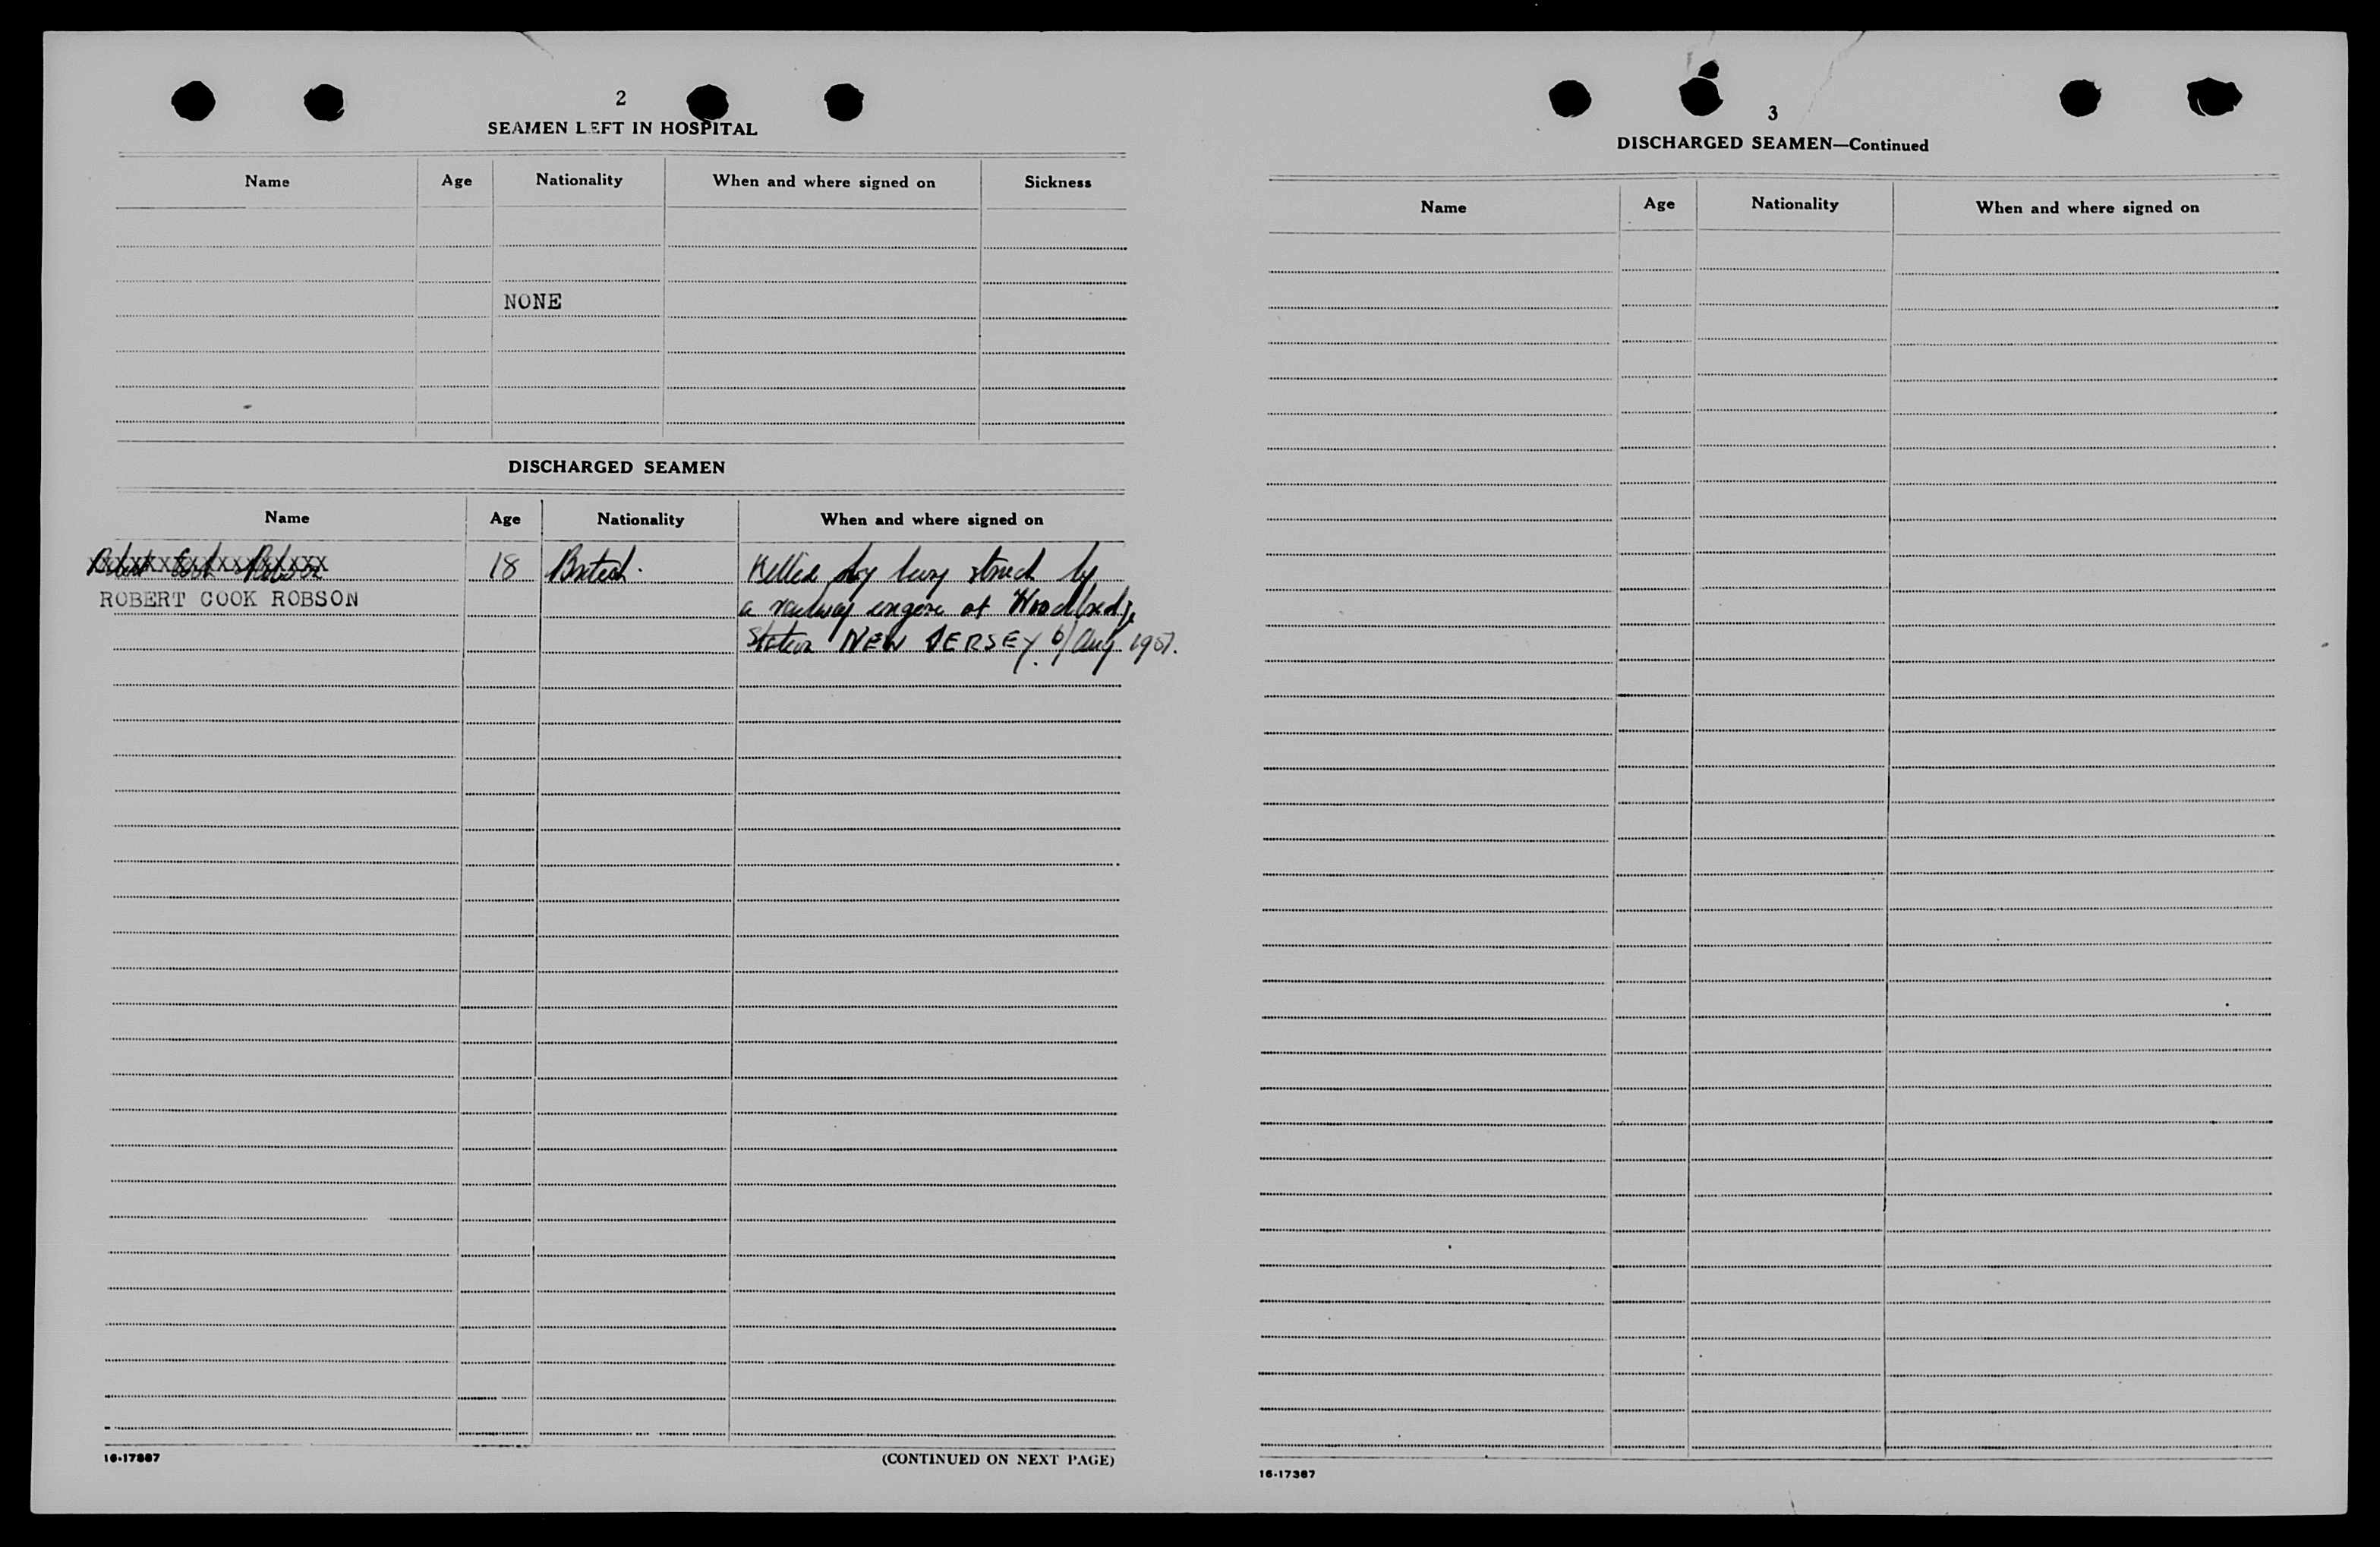 2
SEAMEN LEFT IN HOSPITAL
Name Age Nationality When and where signed on Sickness
NONE
DISCHARGED SEAMEN
Name Age Nationality When and where signed on
Robert Cook Robson 18 British. Killed by being struck by
ROBERT COOK ROBSON a railway engine at Woodbridge
Station NEW JERSEY. 6/Aug 1951.
16-17387 (CONTINUED ON NEXT PAGE)
3
DISCHARGED SEAMEN—Continued
Name Age Nationality When and where signed on
16-17387